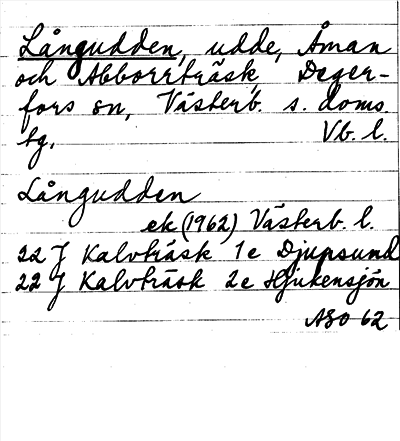 Långudden, udde, Åman
och Abborrträsk, Deger-
fors sn, Västerb. s. doms.
tg. Vb. l.
Långudden
ek (1962) Västerb. l.
22 J Kalvträsk 1e Djupsund
22 J Kalvträsk 2e Hjukensjön
ASO 62